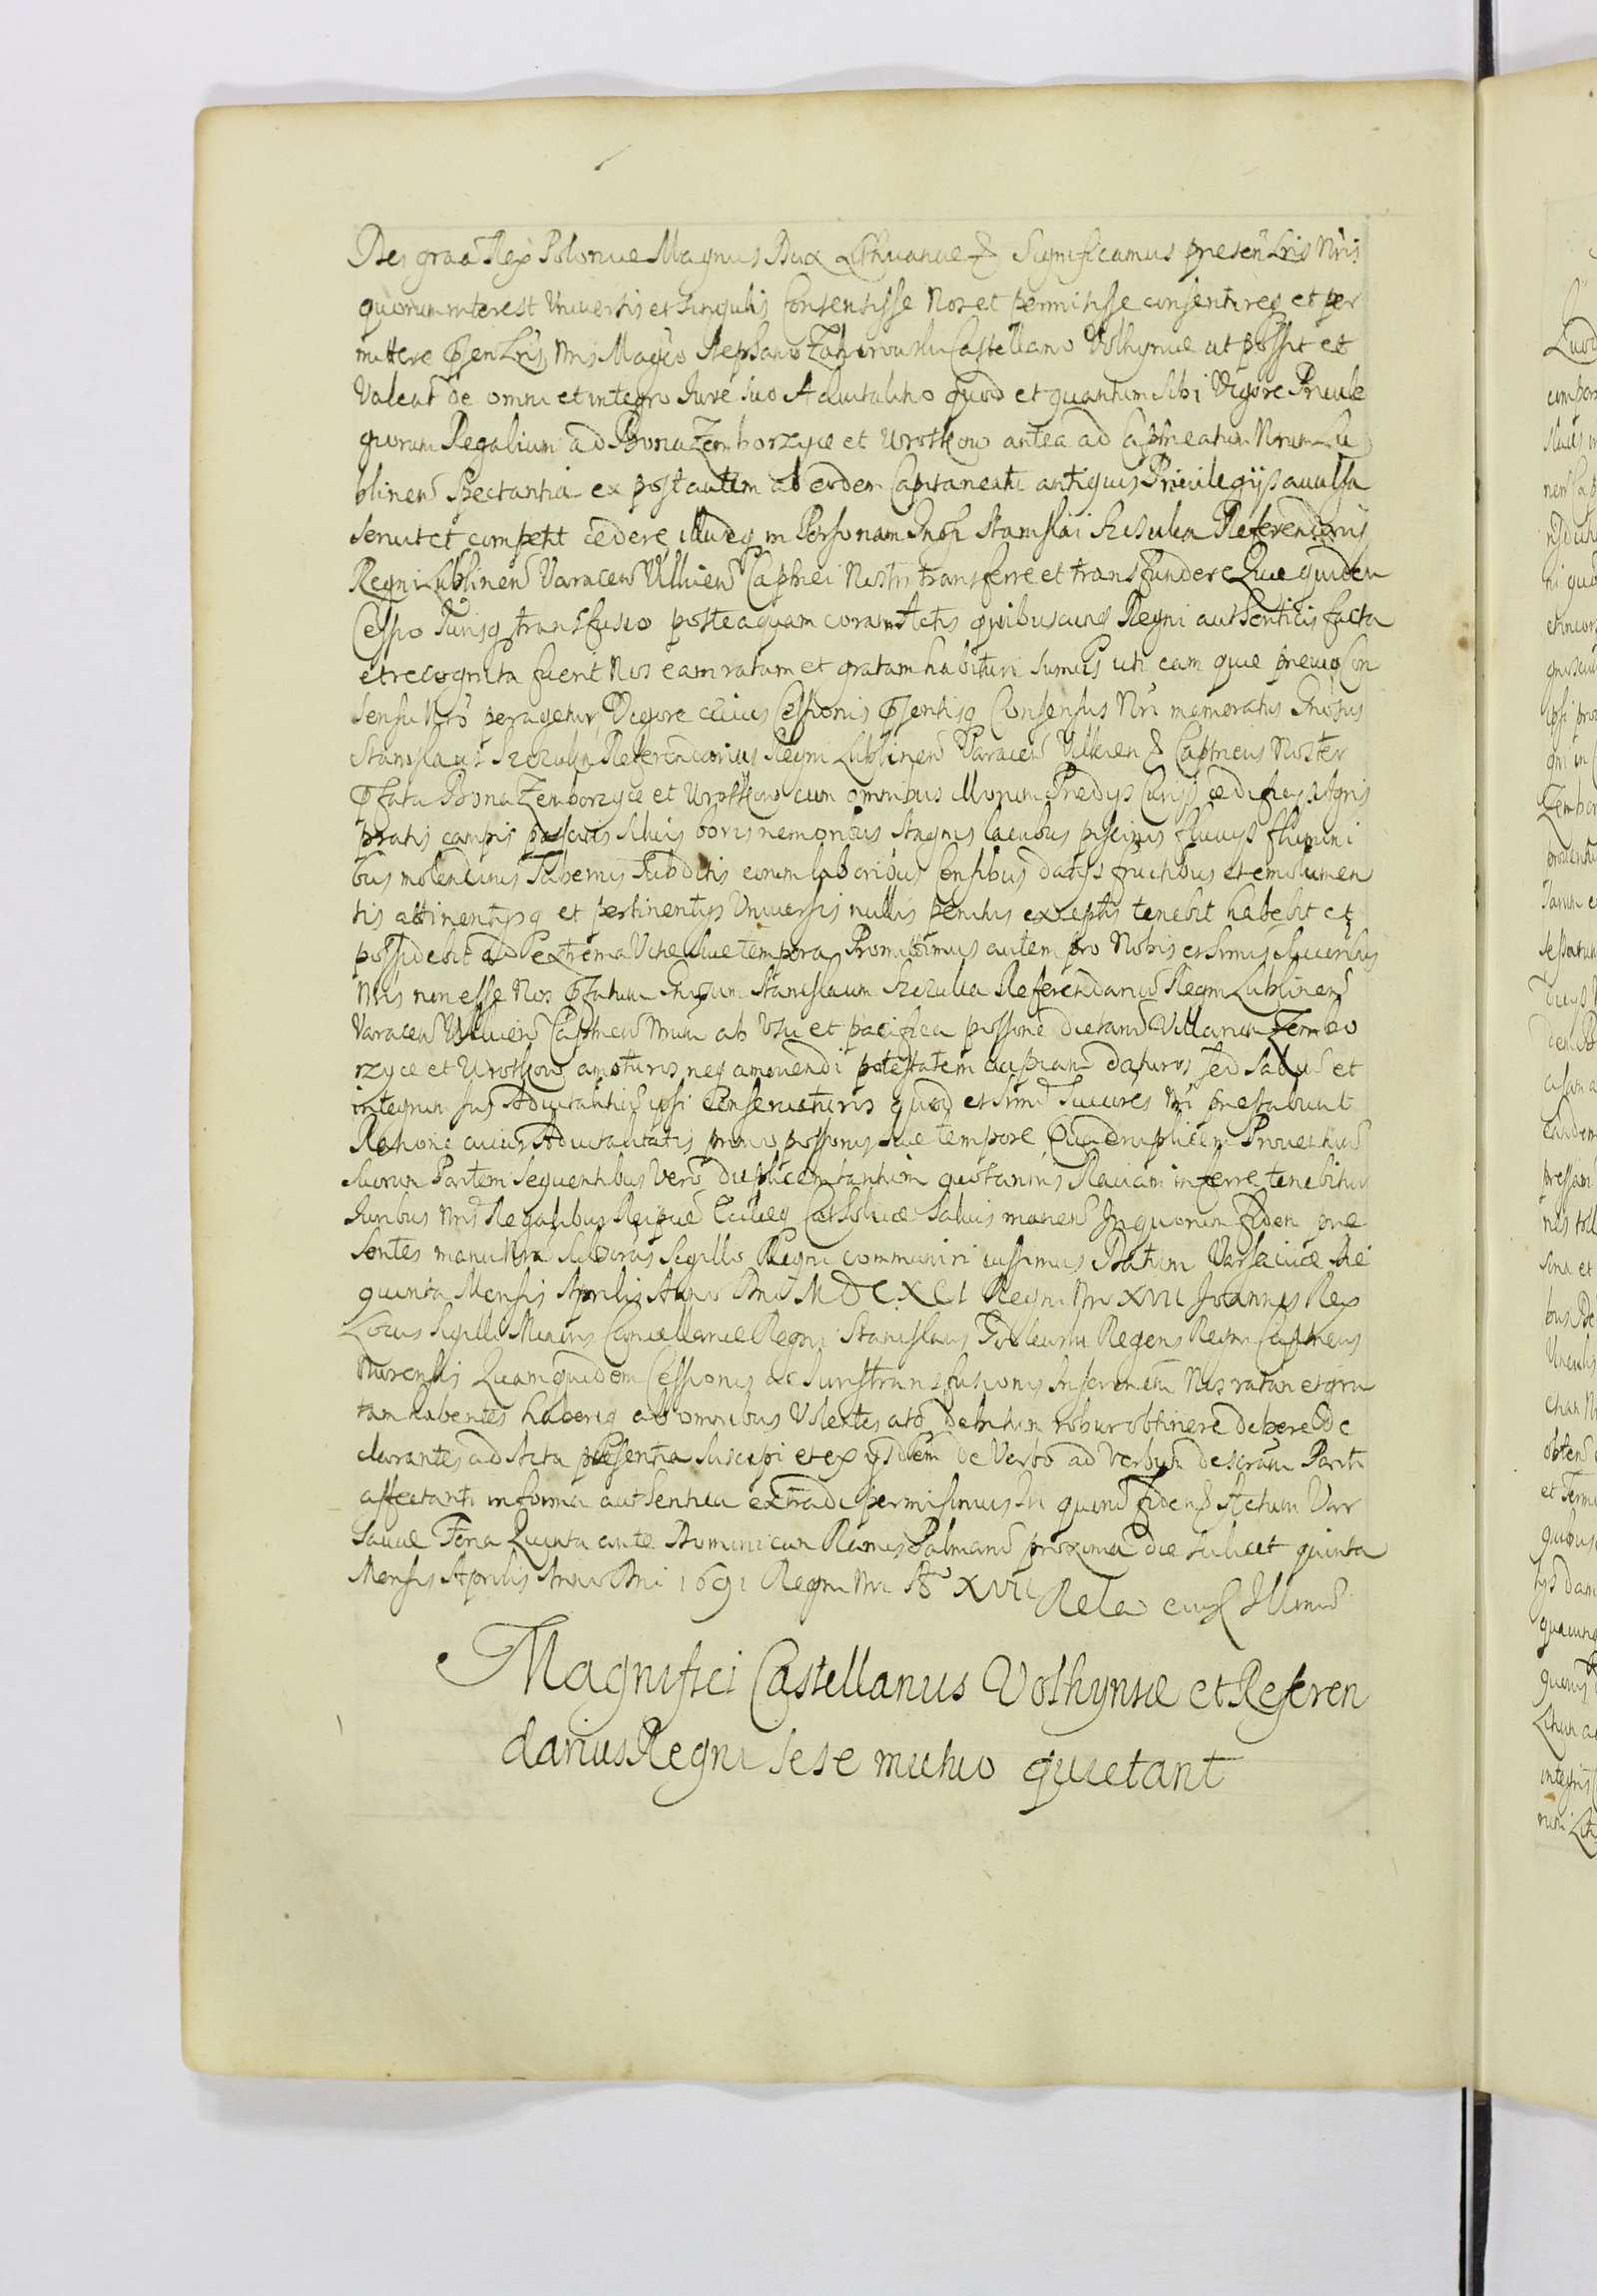 Dei graa Rex Poloniae Magnus Dux Lithuaniae & Significamus presen Lris Nris
quorum interest Universis et singulis Consensisse Nos et permisisse consentireq et per
mittere psen Lris Nris Magco Stephano Zahorowski Castellano Volhyniae ut possit et
valeat de omni et integro Jure suo Advitalitio quod et quantum sibi Vigore Privile
giorum Regalium ad Bona Zemborzyce et Wrotkow antea ad Capitneatum Nrum Lu
blinen Spectantia ex post autem ab eodem Capitaneatu antiquis Privilegijs avulsa
servit et competit cedere illudq in Personam Gnosi Stanislai Szczuka Referendarij
Regni Lublinen Varacen Capitnei Nostri transferre et transfundere Quae quidem
Cessio Jurisq transfusio posteaquam coram Actis quibuscunq Regni authenticis facta
et recognita fuerit Nos eam ratam et gratam habituri sumus uti eam quae previo Con
sensu Nro peragetur Vigore cuius Cessionis psentisq Consensus Nri memoratus Gnosus
Stanislaus Szczuka Referendarius Regni Lublinen Varacen & Capitneus Noster
pfata Bona Zemborzyce et Wrotkow cum omnibus illorum Praedijs Curijs aedificijs Agris
pratis campis pascuis silvis boris nemoribus stagnis lacubus piscinis fluvijs flumini
bus molendinis Tabernis Subditis eorum laboribus Censibus datijs fructibus et emolumen
tis attinentijsq et pertinentijs Universis nullis penitus exceptis tenebit habebit et
possidebit ad extrema Vitae suae tempora Promittimus autem pro Nobis et Srmis Succeribus
Nris non esse Nos pfatum Gnosum Stanislaum Szczuka Referendariu Regni Lublinen
Varacen Capitneu Nrum ab Usu et pacifica possione dictaru Villarum Zembo
rzyce et Wrotkow amoturos neq amovendi potestatem cuipiam daturos sed salvu et
integrum Jus Advitalitiu ipsi Conservaturos quod et Srmi Succres Nri prestabunt
Ratione cuius Advitalitatis primo possonis suae tempore Quadruplicem Proventuu
illorum Partem sequentibus vero duplicem tantum quotannis Ravam inferre tenebitur
Juribus Nris Regalibus Reipcae Eccliaeq Catholicae Salvis manen In quorum fidem prae
sentes manu Nra Subscras Sigillo Regni communiri iussimus Datum Varsaviae Die
quinta Mensis Aprilis Anno Dni MDCXCI Regni Nri XVII Joannes Rex
Locus Sigilli Minoris Cancellariae Regni Stanislaus Regens Regni Capitneus
Nurensis Quamquidem Cessionis ac Juris transfusionis Inscriptnem Nos ratam et gra
tam habentes haberiq ab omnibus Volentes atq debitum robur obtinere debere De
clarantes ad Acta presentia suscepi et ex ijsdem de Verbo ad Verbum descram Parti
affectanti in forma authentica extradi permisimus In quoru fidem & Actum Var
saviae Feria Quinta ante Dominicam Ramis Palmaru proxima die scilicet quinta
Mensis Aprilis Anno Dni 1691 Regni Nri Ao XVII Rela eius Illmi
Magnifici Castellanus Volhyniae et Referen
darius Regni sese mutuo quietant